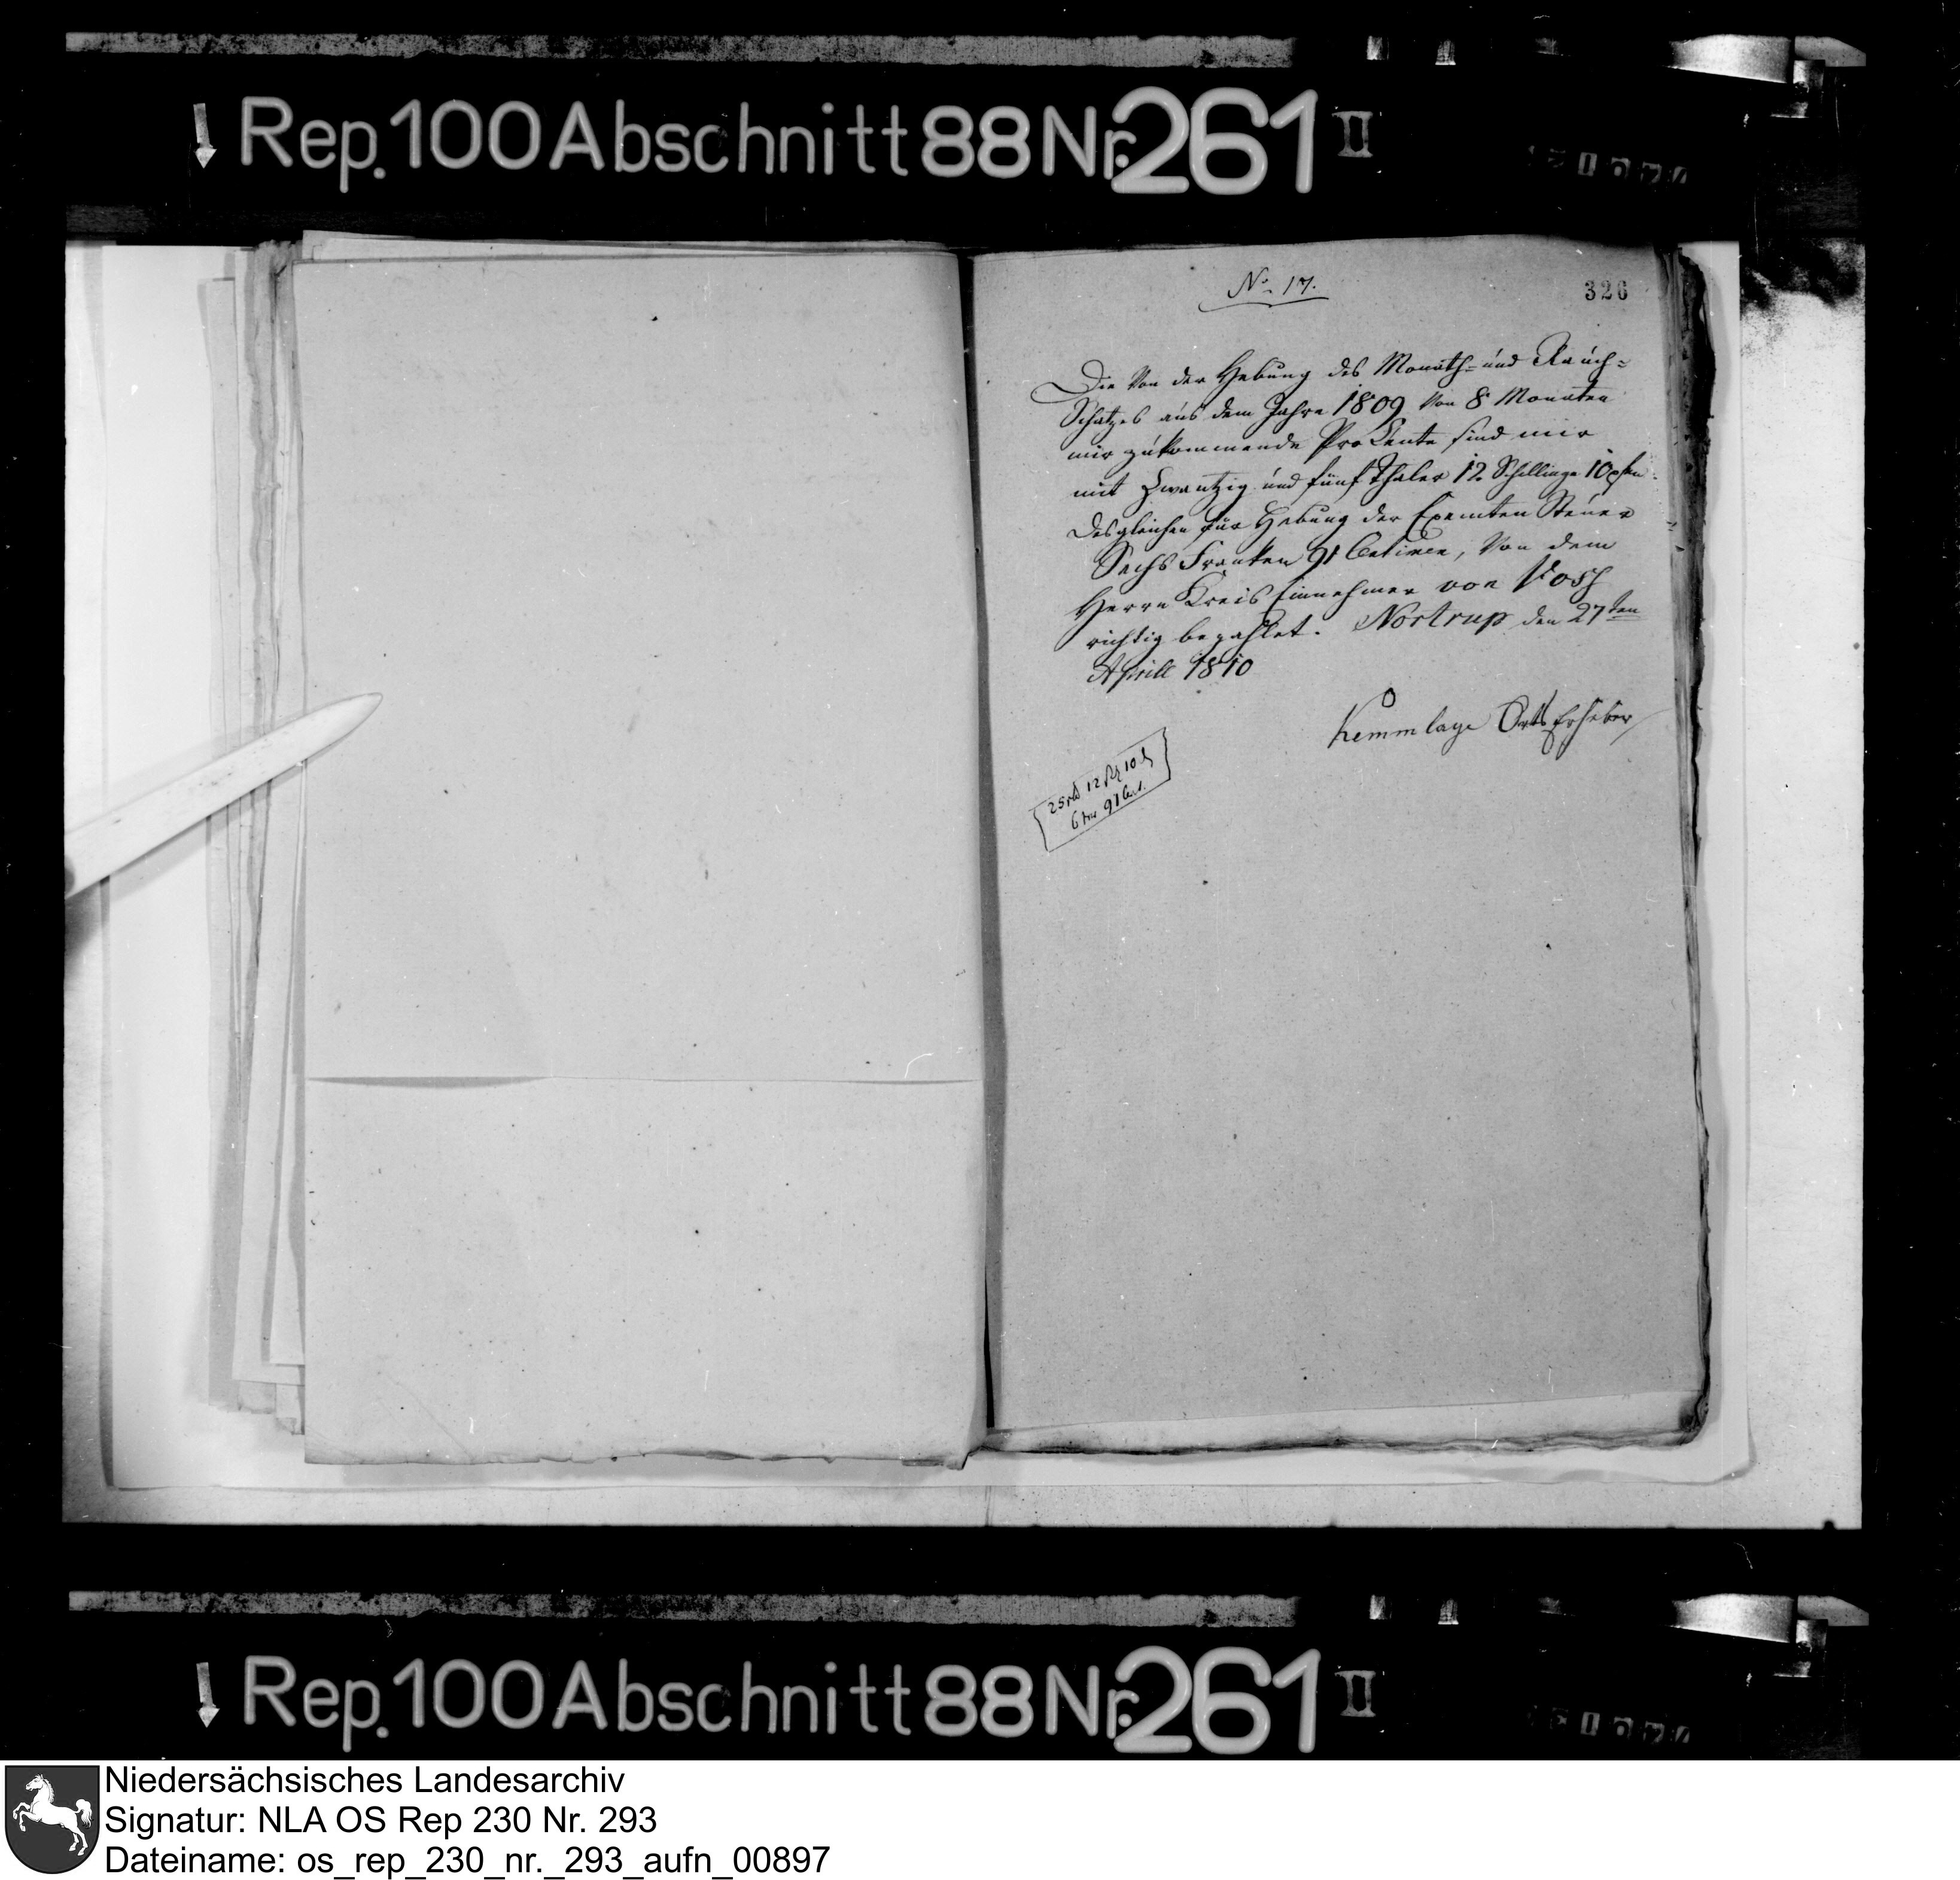 Rep. 100 Abschnitt 88 Nr. 261 II
No. 17.
326
Die von der Hebung des Monath= und Rauch=
Schatzes aus dem Jahre 1809 von 8 Monaten
mir zukommende ProCente sind mir
mit Zwantzig und fünf Thaler 12 Schillinge 10 pfen
Desgleichen für Hebung der Exemten Steuer
Sechs Franken 91 Centimen, von dem
Herrn Kreis Einnehmer von Voss
richtig bezahlet. Nortrup den 27ten
Aprill 1810
Kemmlage Orts Erheber
12 10
6 91 Cent.
Rep. 100 Abschnitt 88 Nr. 261 II
Niedersächsisches Landesarchiv
Signatur: NLA OS Rep 230 Nr. 293
Dateiname: os_rep_230_nr._293_aufn_00897